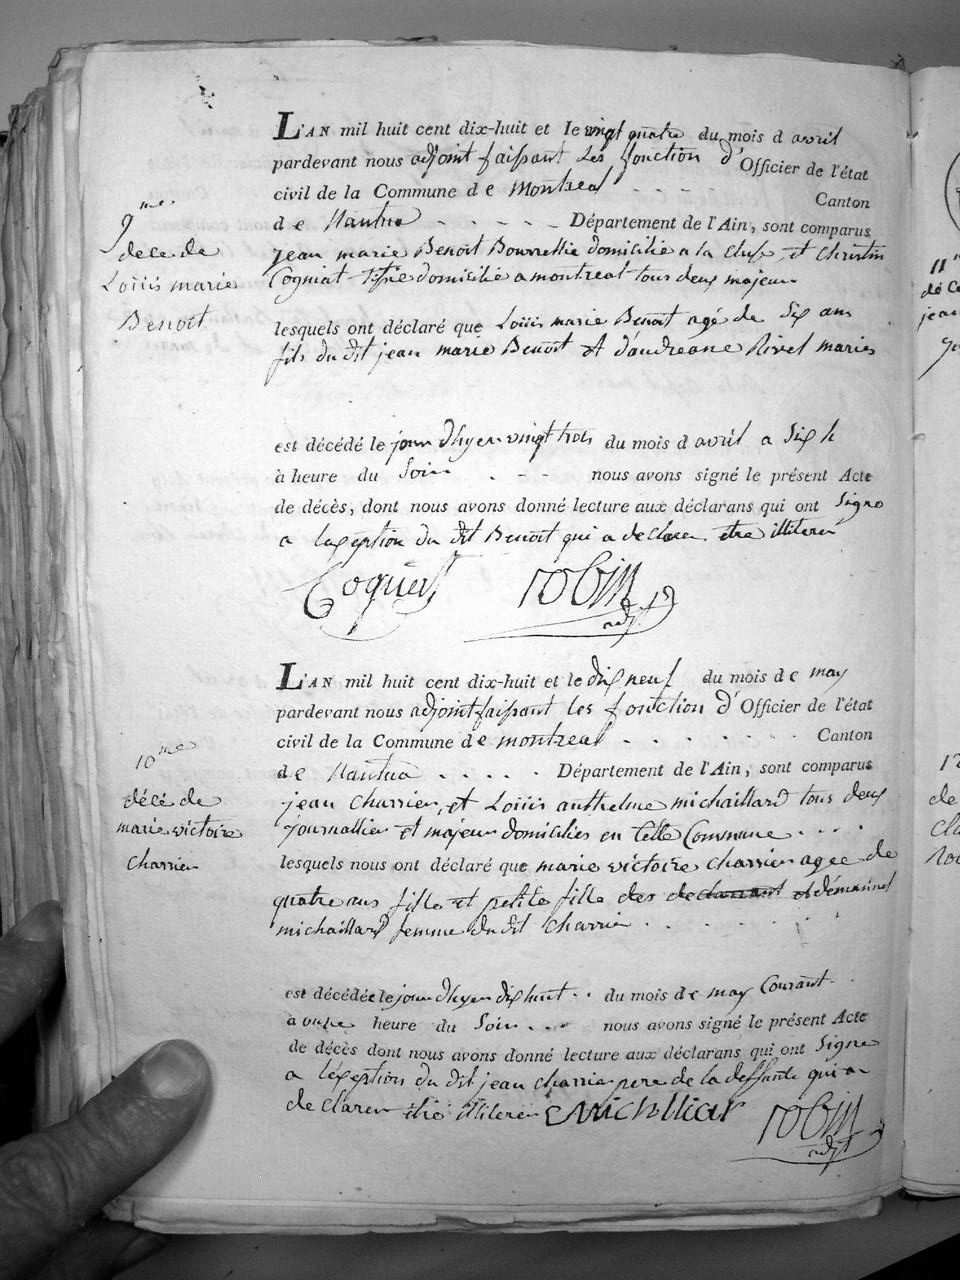 L'AN mil huit cent dix-huit et le vingt quatre du mois d avril
pardevant nous adjoint faissant Les fonction d'Officier de l'état
civil de la Commune de Montreal - - - - Canton
de Nantua - - - - - Département de l'Ain, sont comparus
9me
decede
Loüis marie
Benoit
jean marie Benoit Bourrellie domicilié a la Cluse, et Christin
Cogniat domicilié a montreal tous deux majeur
lesquels ont déclaré que Loüis marie Benoit agé de Six ans
fils du dit jean marie Benoit et d'andreane Rivel mariés
est décédé le jour d'hyer vingt trois du mois d avril a Six h
à heure du Soir - - - nous avons signé le présent Acte
de décès, dont nous avons donné lecture aux déclarans qui ont Signe
a lexeption du dit Benoit qui a declarer etre illiteré
robin
adjt
L'AN mil huit cent dix-huit et le dix neuf du mois de may
pardevant nous adjoint faissant les fonction d'Officier de l'état
civil de la Commune de montreal - - - - - - - Canton
de Nantua - - - - - Département de l'Ain, sont comparus
10me
décé de
marie victoire
Charrier
jean Charrier, et Loüis anthelme michaillard tous deux
journallier et majeur domiciliés en Cette Commune - - - -
lesquels nous ont déclaré que marie victoire charrier agee de
quatre ans fille et petite fille des declarant et
michaillard femme du dit Charrier - - - - - -
est décédée le jour d'hyer dix huit - - du mois de may Courant -
à onze heure du Soir - - - nous avons signé le présent Acte
de décès dont nous avons donné lecture aux déclarans qui ont Signe
a lexeption du dit jean charrier pere de la deffunte qui a
declarer etre illiteré
robin
adjt
11m
jean
12
de